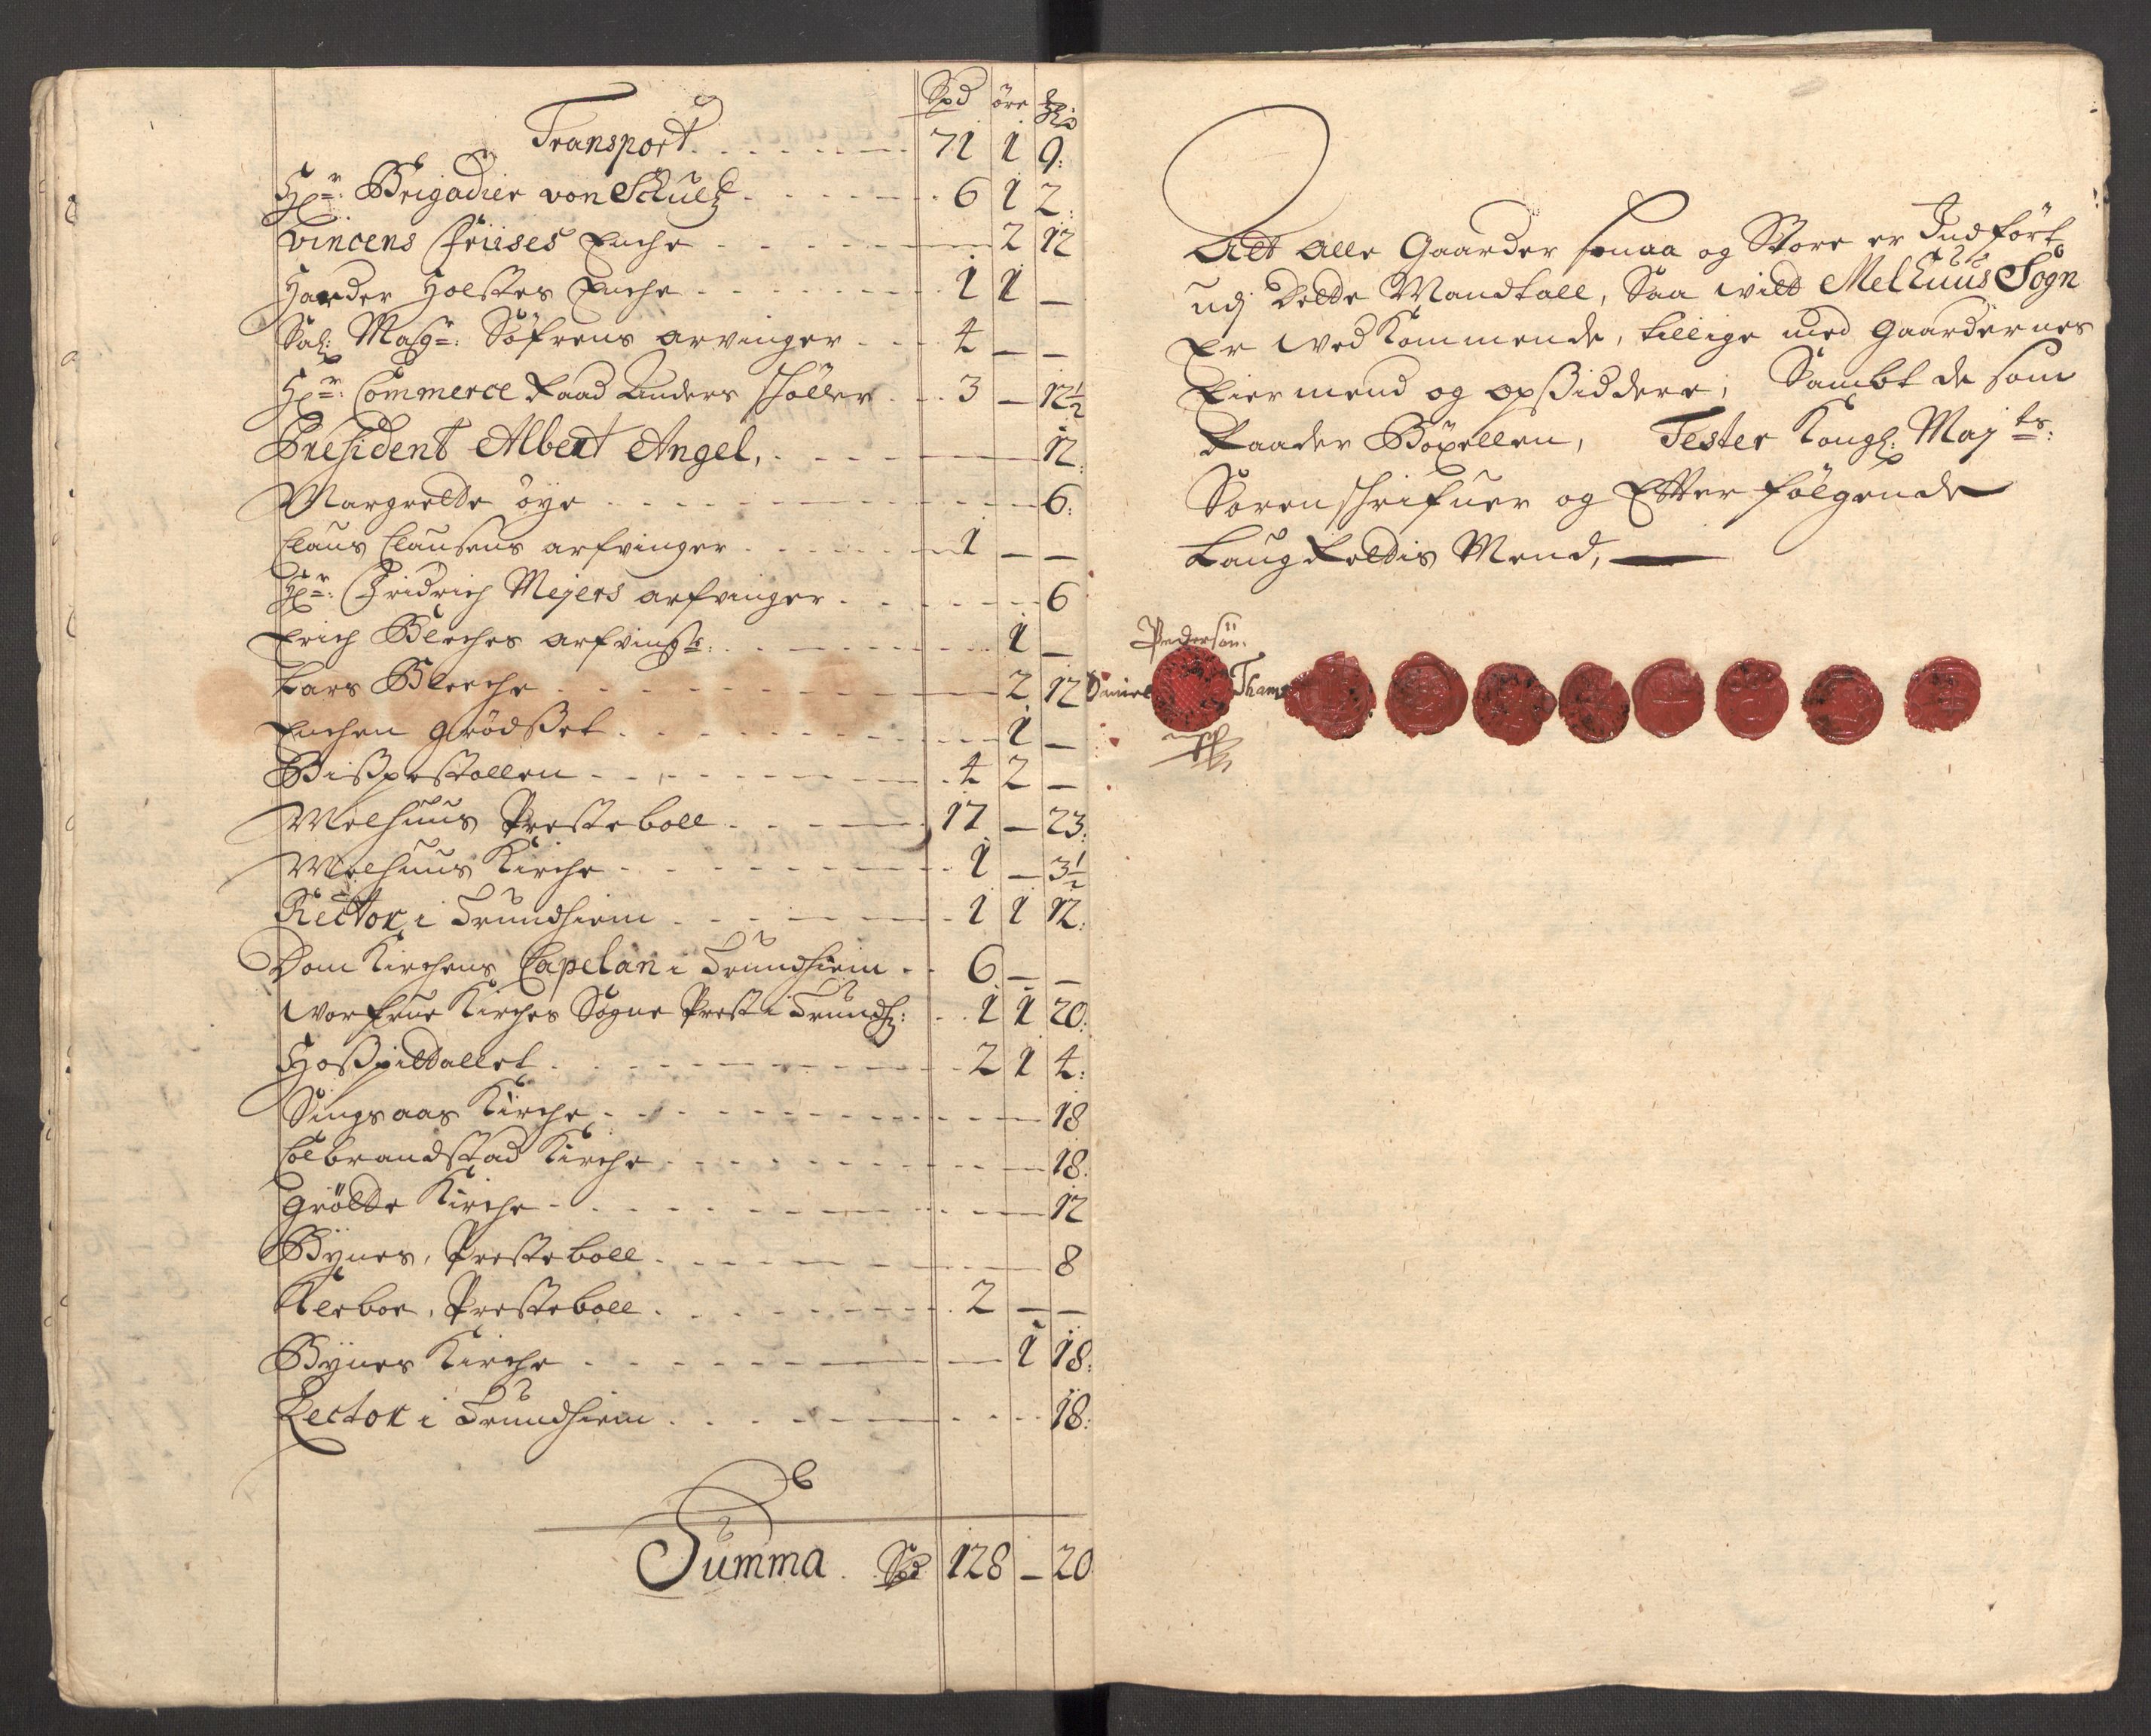 Spd öre
Transport 71 1 9:
Hr: Brigadier von Schultz 6 1 2:
Vincens Friises Enche 2 12
Harder Holstes Enche 1 1 –
Sal: Magr: Söfrens arvinger 4 – –
Hr: Commerce Raad Anders Schöller 3 – 12½
President Albert Angel, 12:
Margrette öye 6:
Claus Clausens arfvinger 1 – –
Hr: Fridrich Mejers arfvinger 6
Erich Bleches arfving: 1 –
Lars Bleche 2 12
Enchen Grödset 1 –
Bispestollen 4 2 –
Melhuus Presteboll 17 – 23:
Melhuus Kirche 1 – 3½
Rector i Trundhiem 1 1 12:
Dom Kirchens Capelan i Trundhiem 6 – –
Vor Frue Kirches Sogne Prest i Trundh: 1 1 20:
Hospittallet 2 1 4:
Singsaas Kirche 18
Colbrandstad Kirche 18:
Grötte Kirche 12
Bynes, Presteboll 8
Kleboe, Presteboll 2 – –
Bynes Kirche 1 18:
Lector i Trundhiem 18:
Summa Spd 128 – 20
Att Alle Gaarder smaa og Store er Indfört
udj dette Mandtall, Saa vitt Melhuus Sogn
Er Ved Kommende, tillige med Gaardernes
Eiermend og opsiddere; Sambt de som
Raader Böxellen, Tester Kongl: Mayts:
Sorenschrifuer og Efterfölgende
Laug Rettis Mend,
Pedersön.
Daniel Tham